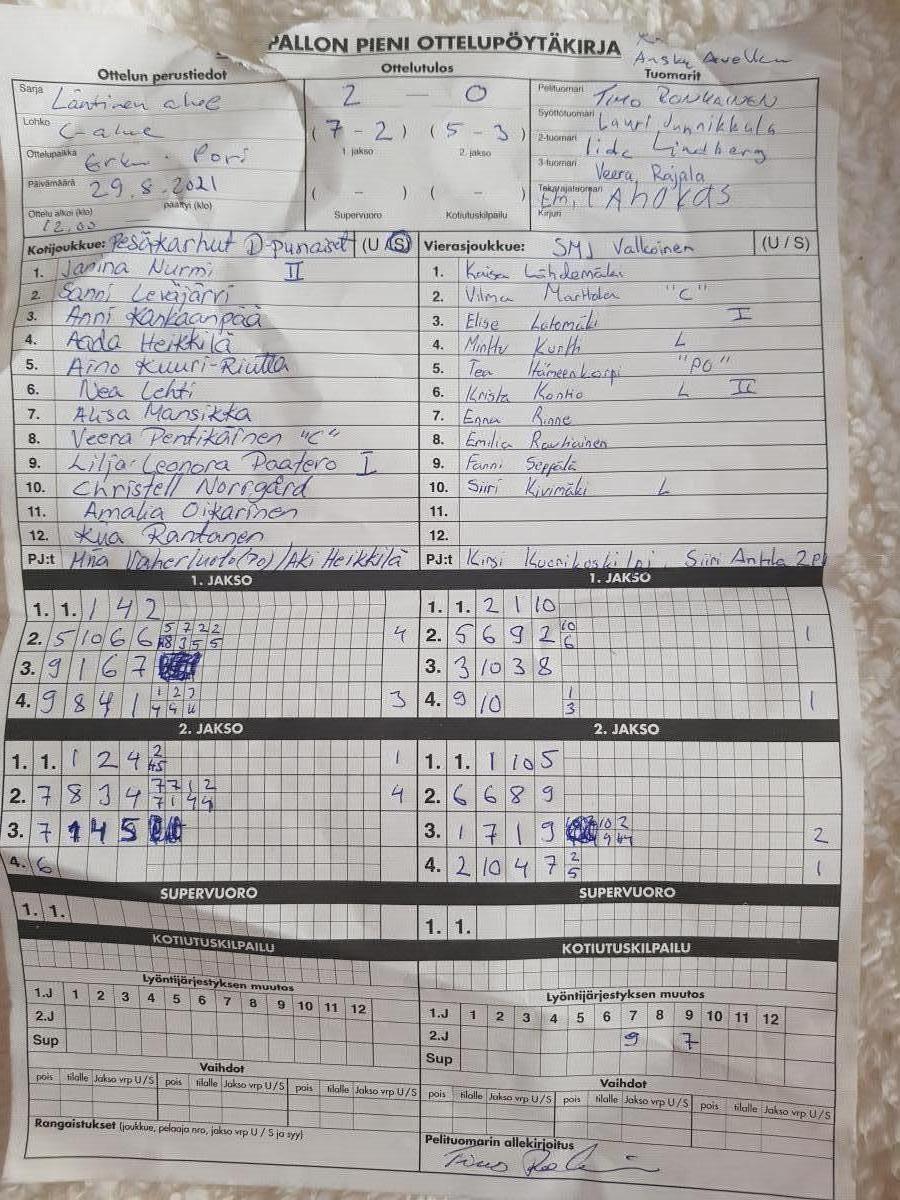 PALLON PIENI OTTELUPÖYTÄKIRJA
Ottelun perustiedot
Ottelutulos
Tuomarit
Sarja Läntinen alue
2 — 0
Pelituomari Timo RONKAINEN
Lohko C-alue
(7 - 2) (5 - 3)
1. jakso 2. jakso
Syöttötuomari Lauri Junnikkala
Ottelupaikka Pori
2-tuomari Iida Lindberg
Päivämäärä 29.8.2021
3-tuomari Veera Rajala
( - ) ( - )
Takarajatuomari
Ottelu alkoi (klo) päättyi (klo)
12.00
Supervuoro Kotiutuskilpailu
Kirjuri Emil Ahokas
Kotijoukkue: Pesäkarhut D-punaiset (U/S)
Vierasjoukkue: SMJ Valkoinen (U / S)
1. Janina Nurmi II
1. Kaisa Lähdemäki
2. Sanni Leväjärvi
2. Vilma Marttola "C"
3. Anni Kankaanpää
3. Elise Latomäki I
4. Aada Heikkilä
4. Minttu Kurth L
5. Aino Kuuri-Riutta
5. Tea Hämeenkorpi "PO"
6. Nea Lehti
6. Krista Kontio L II
7. Alisa Mansikka
7. Enna Rinne
8. Veera Pentikäinen "C"
8. Emilia Rauhiainen
9. Lilja-Leonora Paatero I
9. Fanni Seppälä
10. Christell Norrgård
10. Siiri Kivimäki L
11. Amalia Oikarinen
11.
12. Kiia Rantanen
12.
PJ:t /Aki Heikkilä
PJ:t Kirsi Siiri Antila 2PJ
1. JAKSO
1. JAKSO
1. 1. 1 4 2
1. 1. 2 1 10
2. 5 10 6 6 5 7 2 2 4
8 3 5 5
2. 5 6 9 2 10 1
6
3. 9 1 6 7
3. 3 10 3 8
4. 9 8 4 1 1 2 3 3
4 4
4. 9 10 1 1
3
2. JAKSO
2. JAKSO
1. 1. 1 2 4 2 1
45
1. 1. 1 10 5
2. 7 8 3 4 7 7 1 2 4
7 1 4 4
2. 6 6 8 9
3. 7 1 4 5
3. 1 7 1 9 10 2 2
9
4. 6
4. 2 10 4 7 2 1
5
SUPERVUORO
SUPERVUORO
1. 1.
1. 1.
KOTIUTUSKILPAILU
KOTIUTUSKILPAILU
Lyöntijärjestyksen muutos
Lyöntijärjestyksen muutos
1.J 1 2 3 4 5 6 7 8 9 10 11 12
1.J 1 2 3 4 5 6 7 8 9 10 11 12
2.J
2.J 9 7
Sup
Sup
Vaihdot
Vaihdot
pois tilalle Jakso vrp U/S pois tilalle Jakso vrp U/S pois tilalle Jakso vrp U/S
pois tilalle Jakso vrp U/S pois tilalle Jakso vrp U/S pois tilalle Jakso vrp U/S
Rangaistukset (joukkue, pelaaja nro, jakso vrp U / S ja syy)
Pelituomarin allekirjoitus